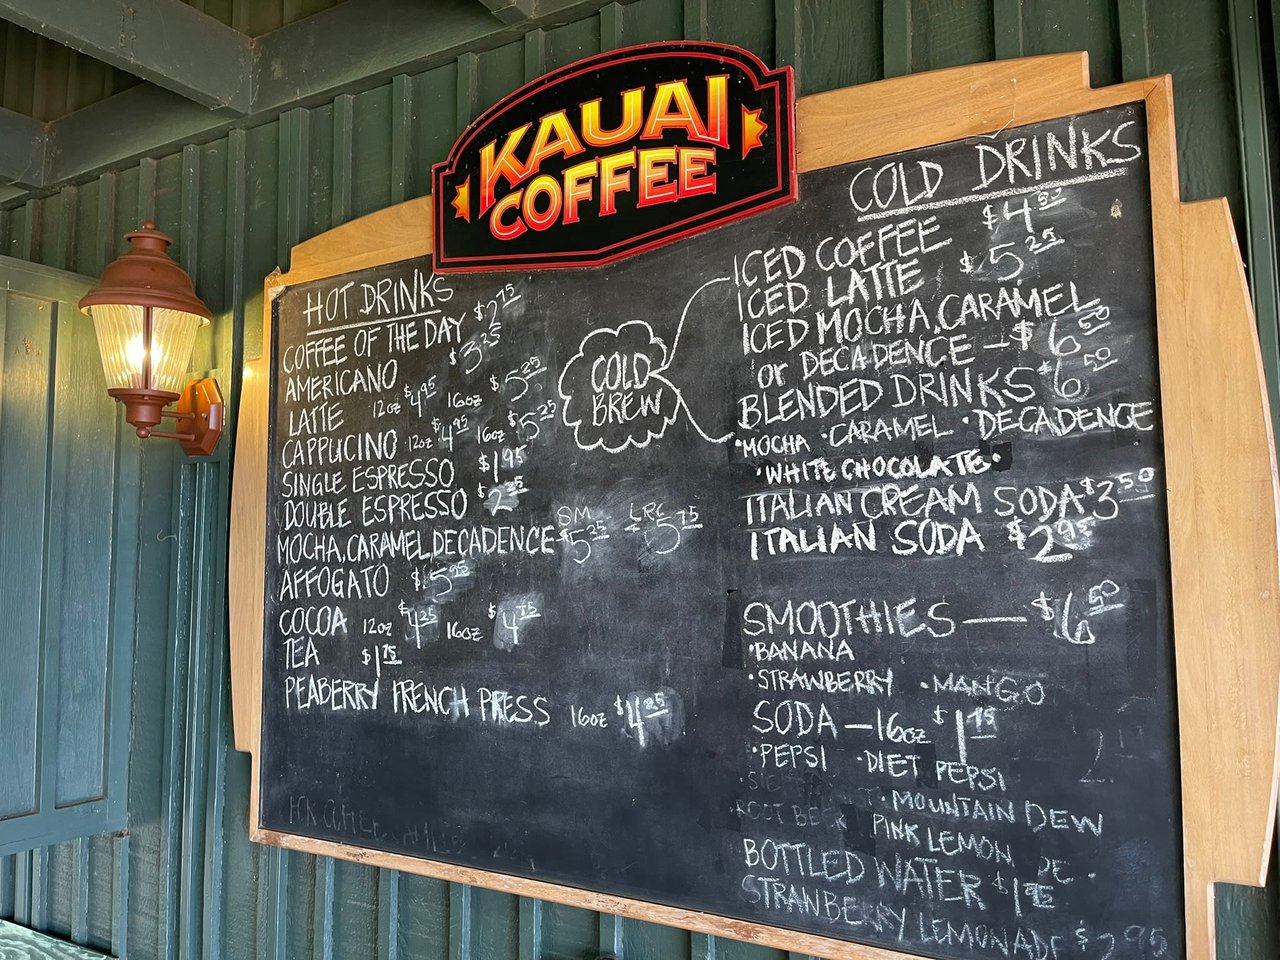 KAUAI
COFFEE
HOT DRINKS
COFFEE OF THE DAY $2.75
AMERICANO $3.25
LATTE 12oz $4.95 16oz $5.25
CAPPUCINO 12oz $4.95 16oz $5.25
SINGLE ESPRESSO $1.95
DOUBLE ESPRESSO $2.25
SM LRG
MOCHA, CARAMEL, DECADENCE $5.25 $5.75
AFFOGATO $5.95
COCOA 12oz $4.25 16oz $4.75
TEA $1.75
PEABERRY FRENCH PRESS 16oz $4.25
COLD
BREW
COLD DRINKS
ICED COFFEE $4.50
ICED LATTE $5.25
ICED MOCHA, CARAMEL
or DECADENCE — $6.50
BLENDED DRINKS $6.50
•MOCHA •CARAMEL •DECADENCE
•WHITE CHOCOLATE•
ITALIAN CREAM SODA $3.50
ITALIAN SODA $2.95
SMOOTHIES — $6.50
•BANANA
•STRAWBERRY •MANGO
SODA — 16oz $1.95
•PEPSI •DIET PEPSI
•MOUNTAIN DEW
ROOT BEE PINK LEMON DE
BOTTLED WATER $1.95
STRANBERRY LEMONADE $2.95